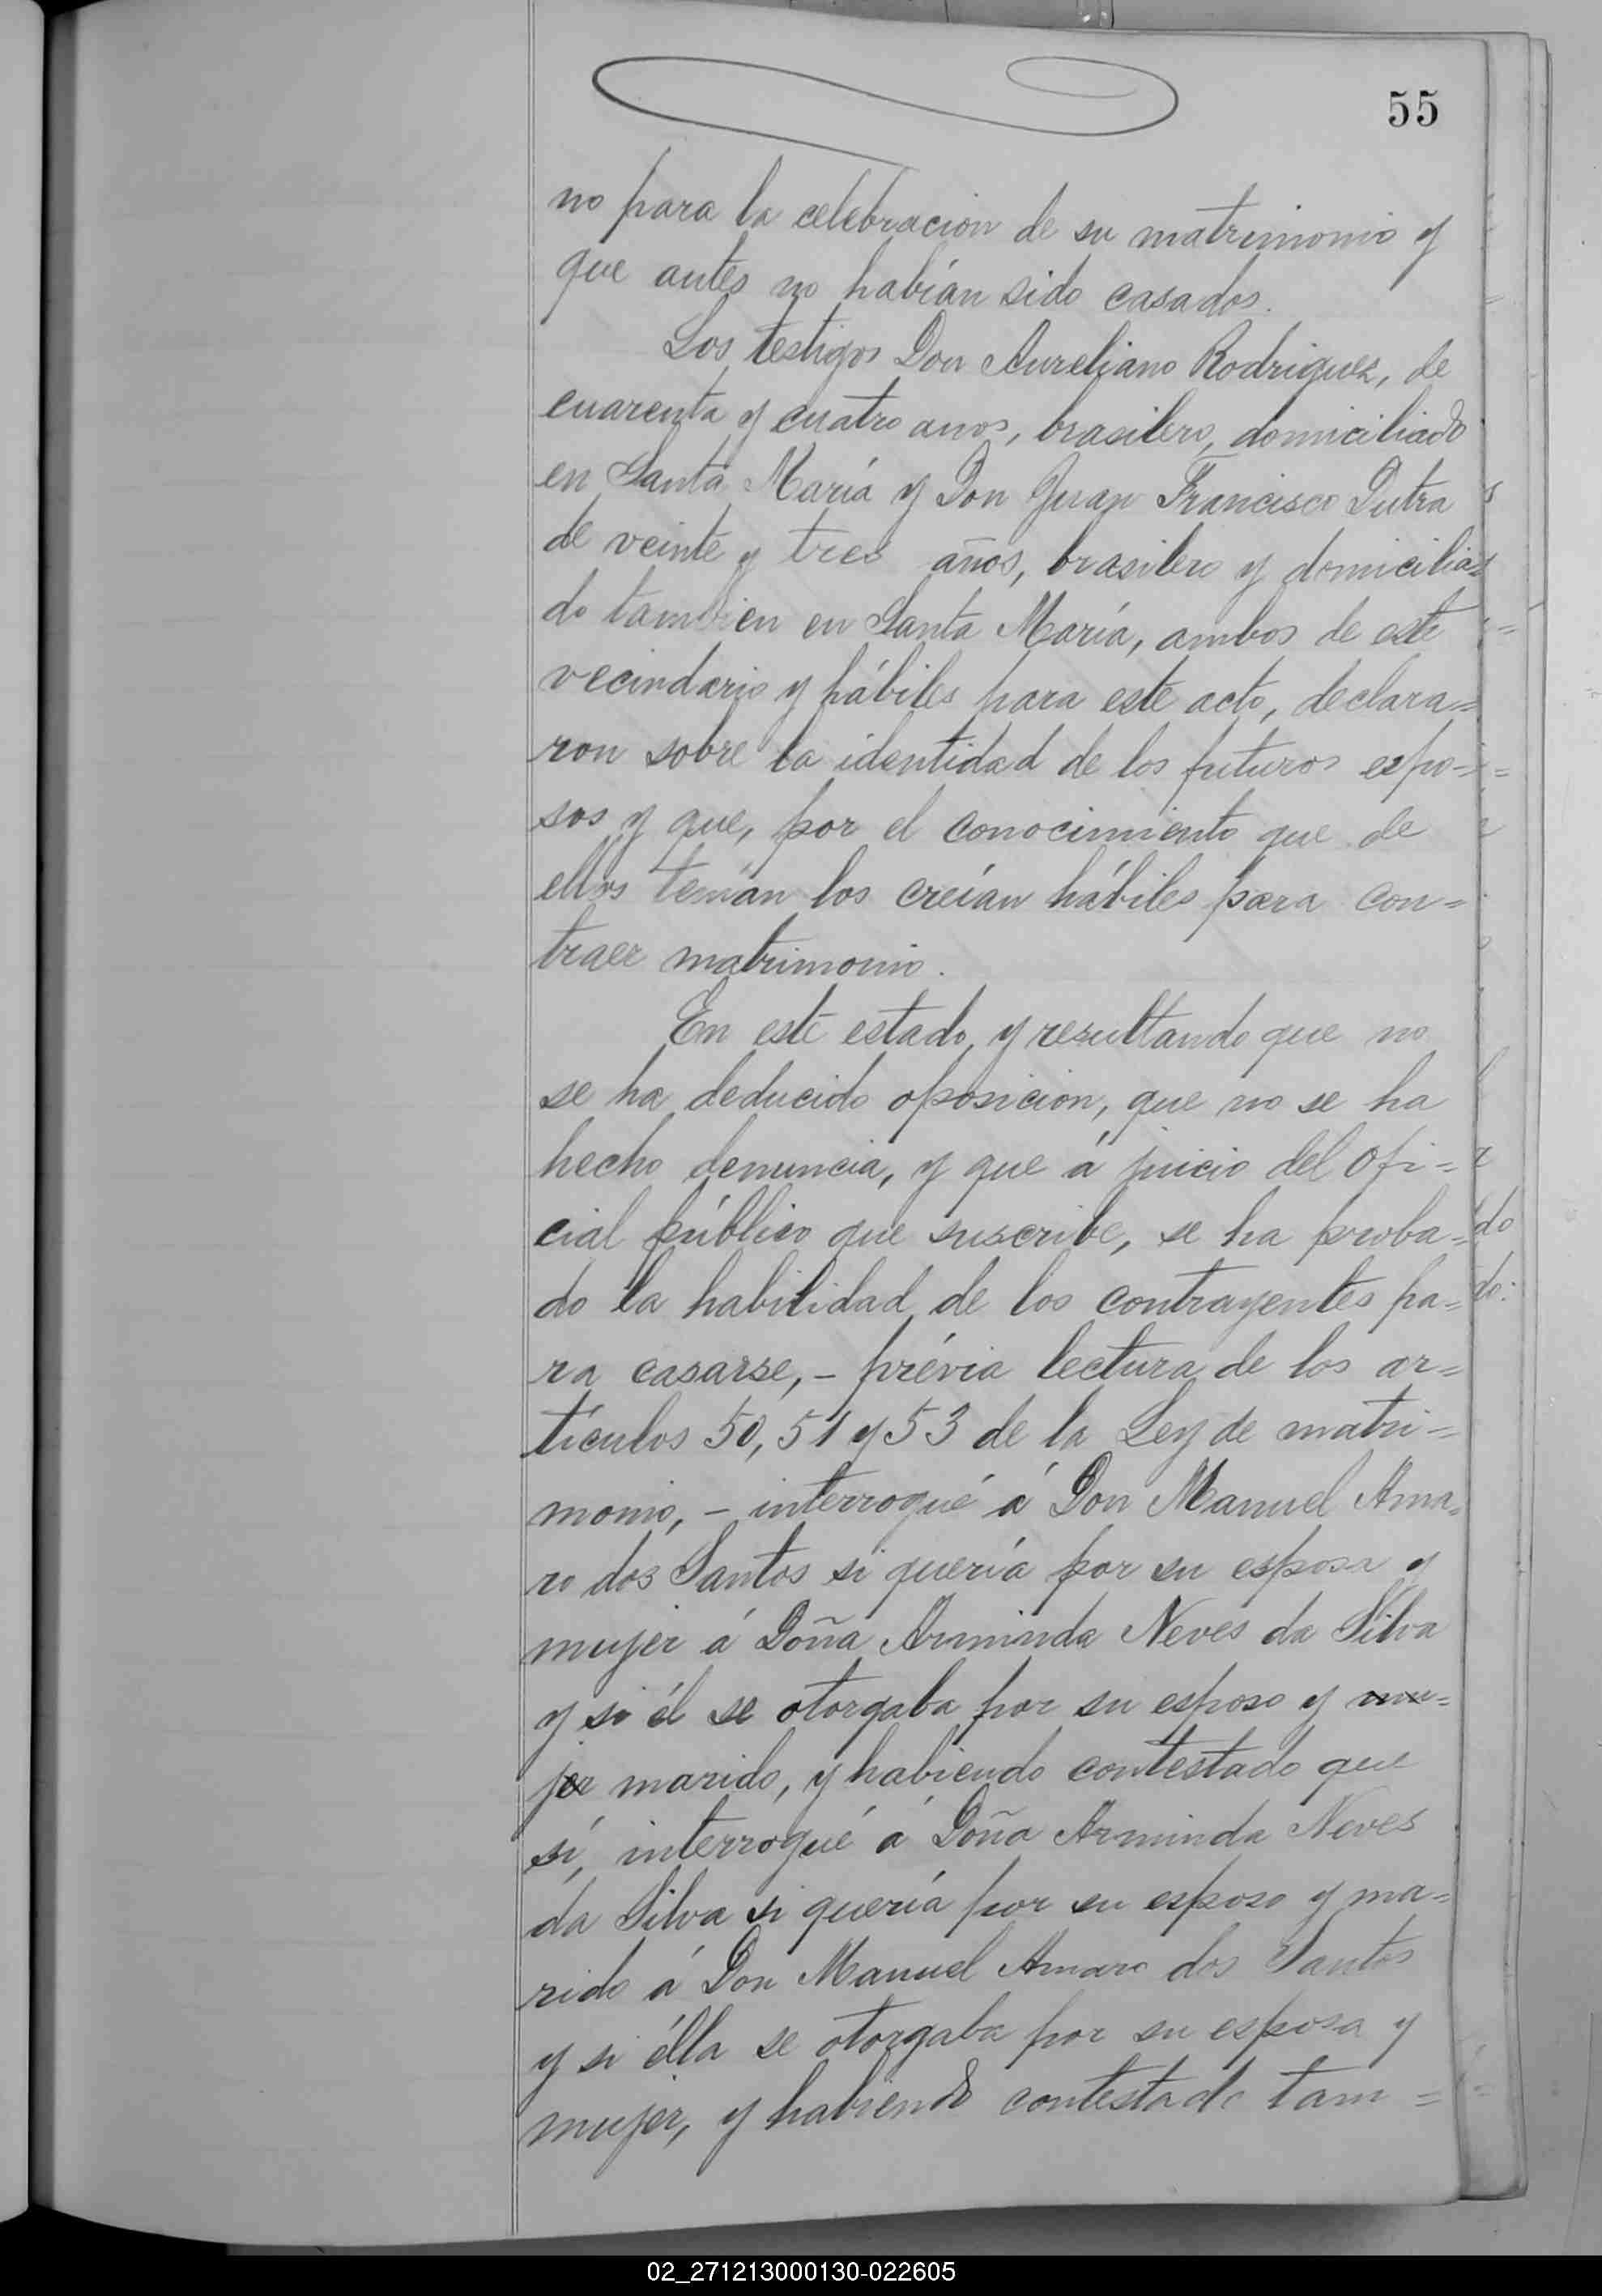 55
no para la celebracion de su matrimonio y
que antes no habían sido casados.
Los testigos Don Aureliano Rodriguez, de
cuarenta y cuatro anos, brasilero, domiciliado
en Santa María y Don Juan Francisco Dutra
de veinte y tres años, brasilero y domicilia=
do tambien en Santa María, ambos de este
vecindario y hábiles para este acto, declara=
ron sobre la identidad de los futuros espo=
sos y que, por el conocimiento que de
ellos tenían los creían hábiles para con=
traer matrimonio.
En este estado y resultando que no
se ha deducido oposicion, que no se ha
hecho denuncia, y que á juicio del Ofi=
cial público que suscribe, se ha proba=
do la habilidad de los contrayentes pa=
ra casarse, – prévia lectura de los ar=
tículos 50, 51 y 53 de la Ley de matri=
monio, – interrogué á Don Manuel Ama=
ro dos Santos si quería por su esposa y
mujer á Doña Arminda Neves da Silva
y si él se otorgaba por su esposo y mu=
jer marido, y habiendo contestado que
sí, interrogué á Doña Arminda Neves
da Silva si quería por su esposo y ma=
rido á Don Manuel Amaro dos Santos
y si élla se otorgaba por su esposa y
mujer, y habiendo contestado tam=
02_271213000130-022605